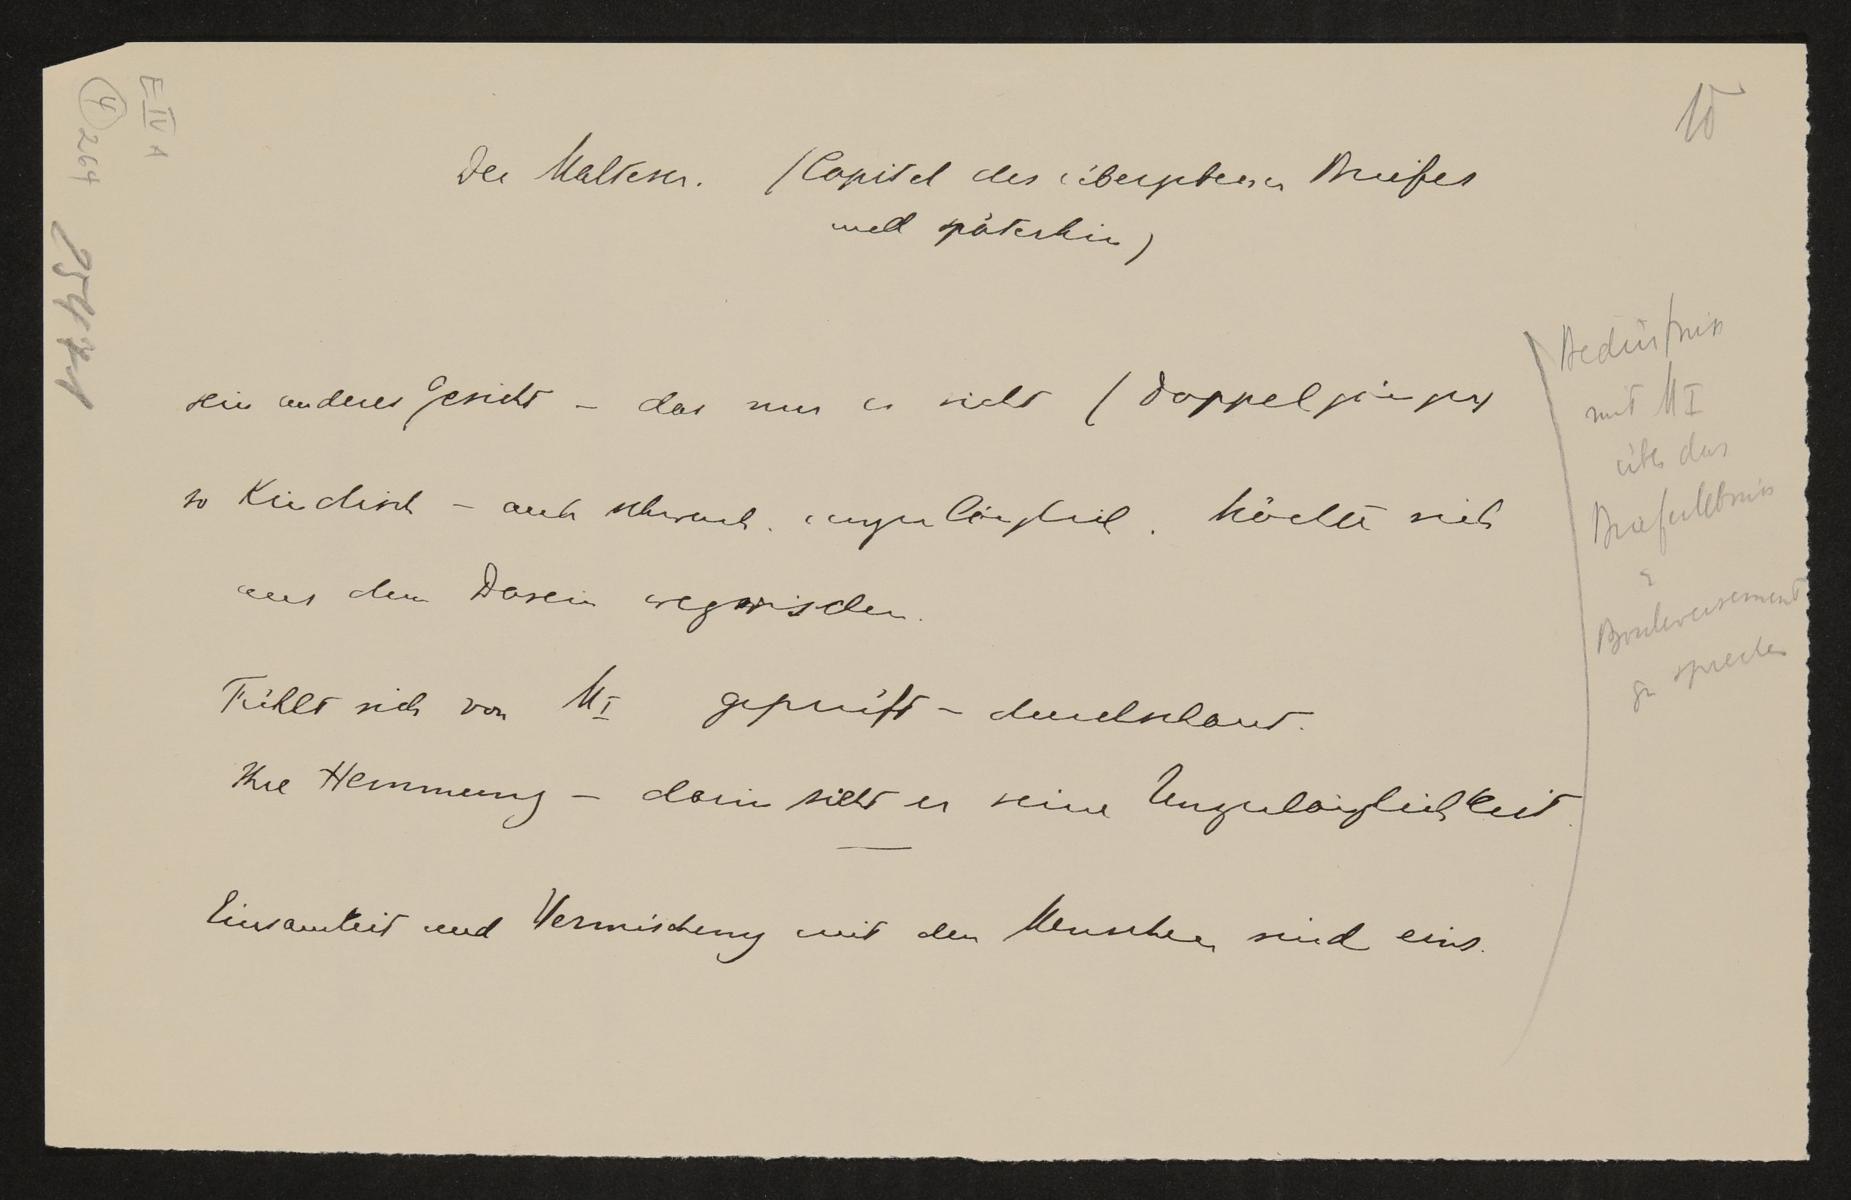 15
E IV A
4 264
254 71
Der Malteser. (Capitel des übergebenen Briefes
und späterhin)
sein anderes Gesicht – das nur er sieht (Doppelgänger)
so Kindisch – auch schwach. unzulänglich. Möchte sich
aus dem Dasein wegwischen.
Fühlt sich von M I geprüft – durchschaut.
Ihre Hemmung – darin sieht er seine Unzulänglichkeit.
Einsamkeit und Vermischung mit den Menschen sind eins.
Bedürfnis
mit M I
über das
Brieferlebnis
&
Bouleversement
zu sprechen